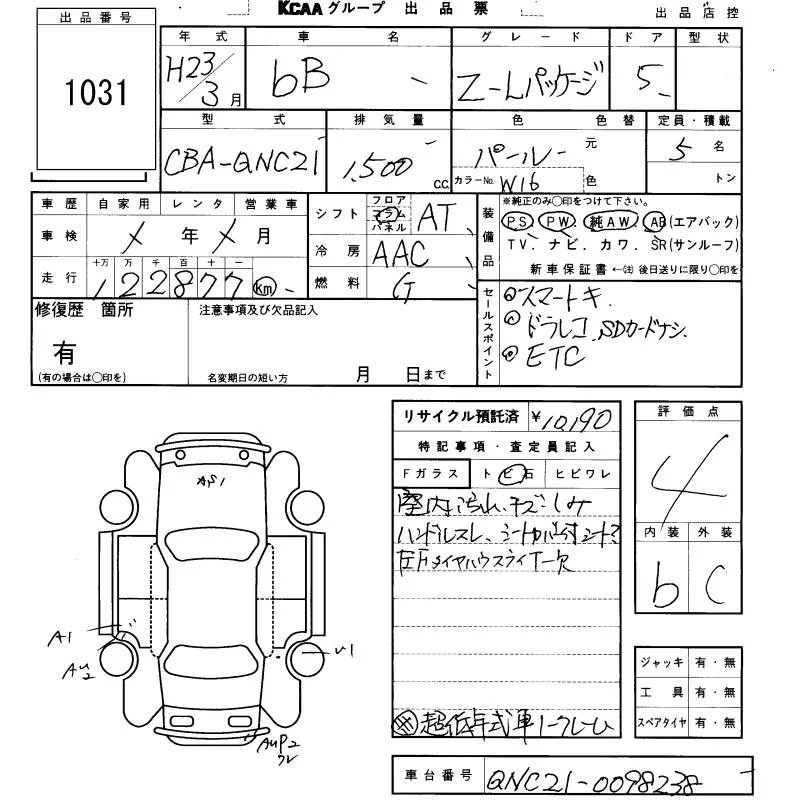 KCAA グループ 出品票
出品店控
出品番号
1031
年式
H23/3月
車名
bB
グレード
Z-Lパッケージ
ドア
5
型状
型式
CBA-QNC21
排気量
1,500
C.C.
色
パール
元
色替
カラーNo.
W16
色
定員・積載
5名
トン
車歴
自家用
レンタ
営業車
車検
メ年メ月
走行
十万 万 千 百 十 一
122877 km
シフト
フロア
コラム
パネル
AT
冷房
AAC
燃料
G
装備品
※純正のみ○印をつけて下さい。
PS、PW、純AW、AB(エアバック)
TV、ナビ、カワ、SR(サンルーフ)
新車保証書 ←㊟ 後日送りに限り○印を
セールスポイント
スマートキ
ドラレコ、SDカードナシ
ETC
修復歴 箇所
有
(有の場合は○印を)
注意事項及び欠品記入
名変期日の短い方
月
日まで
リサイクル預託済
¥10,190
特記事項・査定員記入
Fガラス
トビ石
ヒビワレ
室内汚れ、キズ、しみ
ハンドルスレ、
左Fタイヤハウスライナー欠
※超低年式車1-クレーム
評価点
4
内装
b
外装
C
ジャッキ 有・無
工具 有・無
スペアタイヤ 有・無
A1
AU2
U1
AUP2
ワレ
車台番号
QNC21-0098238